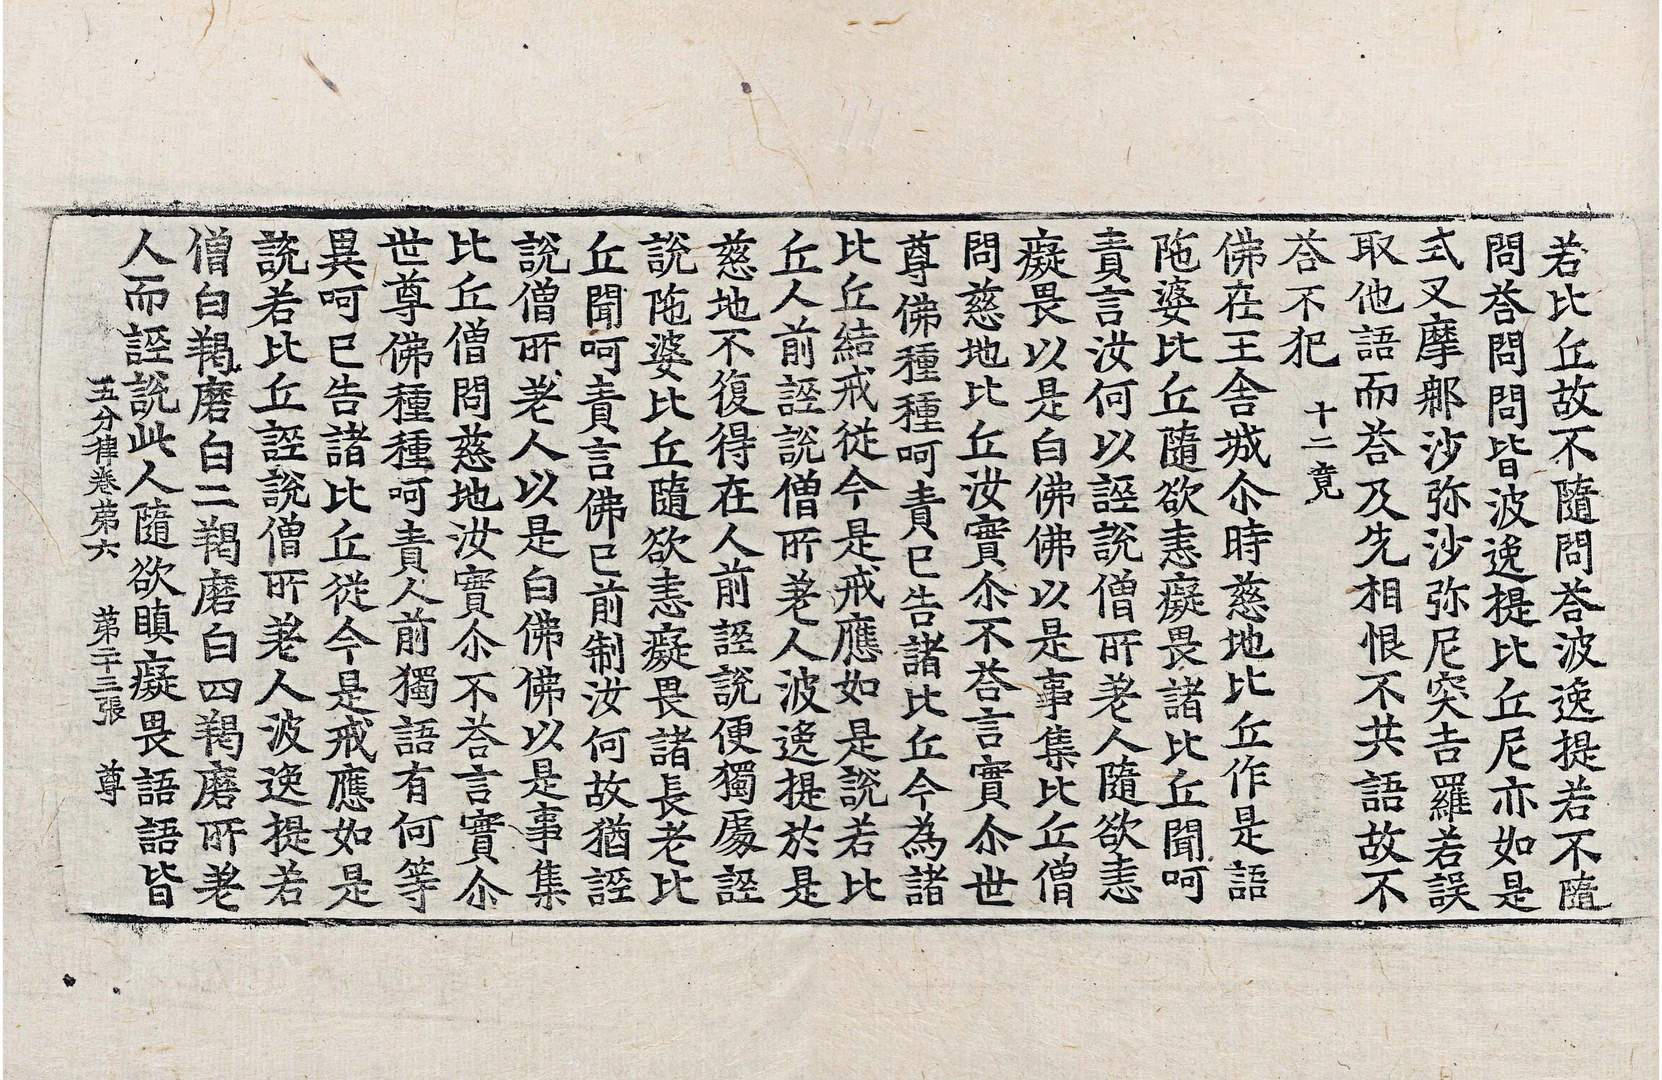 若比丘故不隨問荅波逸提若不隨
問荅問問皆波逸提比丘尼亦如是
式叉摩郍沙弥沙弥尼突吉羅若誤
取他語而荅及先相恨不共語故不
荅不犯 十二竟
佛在王舍城尒時慈地比丘作是語
陁婆比丘隨欲恚癡畏諸比丘聞呵
責言汝何以誣說僧所差人隨欲恚
癡畏以是白佛佛以是事集比丘僧
問慈地比丘汝實尒不荅言實尒世
尊佛種種呵責已告諸比丘今為諸
比丘結戒從今是戒應如是說若比
丘人前誣說僧所差人波逸提於是
慈地不復得在人前誣說便獨處誣
說陁婆比丘隨欲恚癡畏諸長老比
丘聞呵責言佛已前制汝何故猶誣
說僧所差人以是白佛佛以是事集
比丘僧問慈地汝實尒不荅言實尒
世尊佛種種呵責人前獨語有何等
異呵已告諸比丘從今是戒應如是
說若比丘誣說僧所差人波逸提若
僧白羯磨白二羯磨白四羯磨所差
人而誣說此人隨欲瞋癡畏語語皆
五分律卷第六 第二十三張 尊